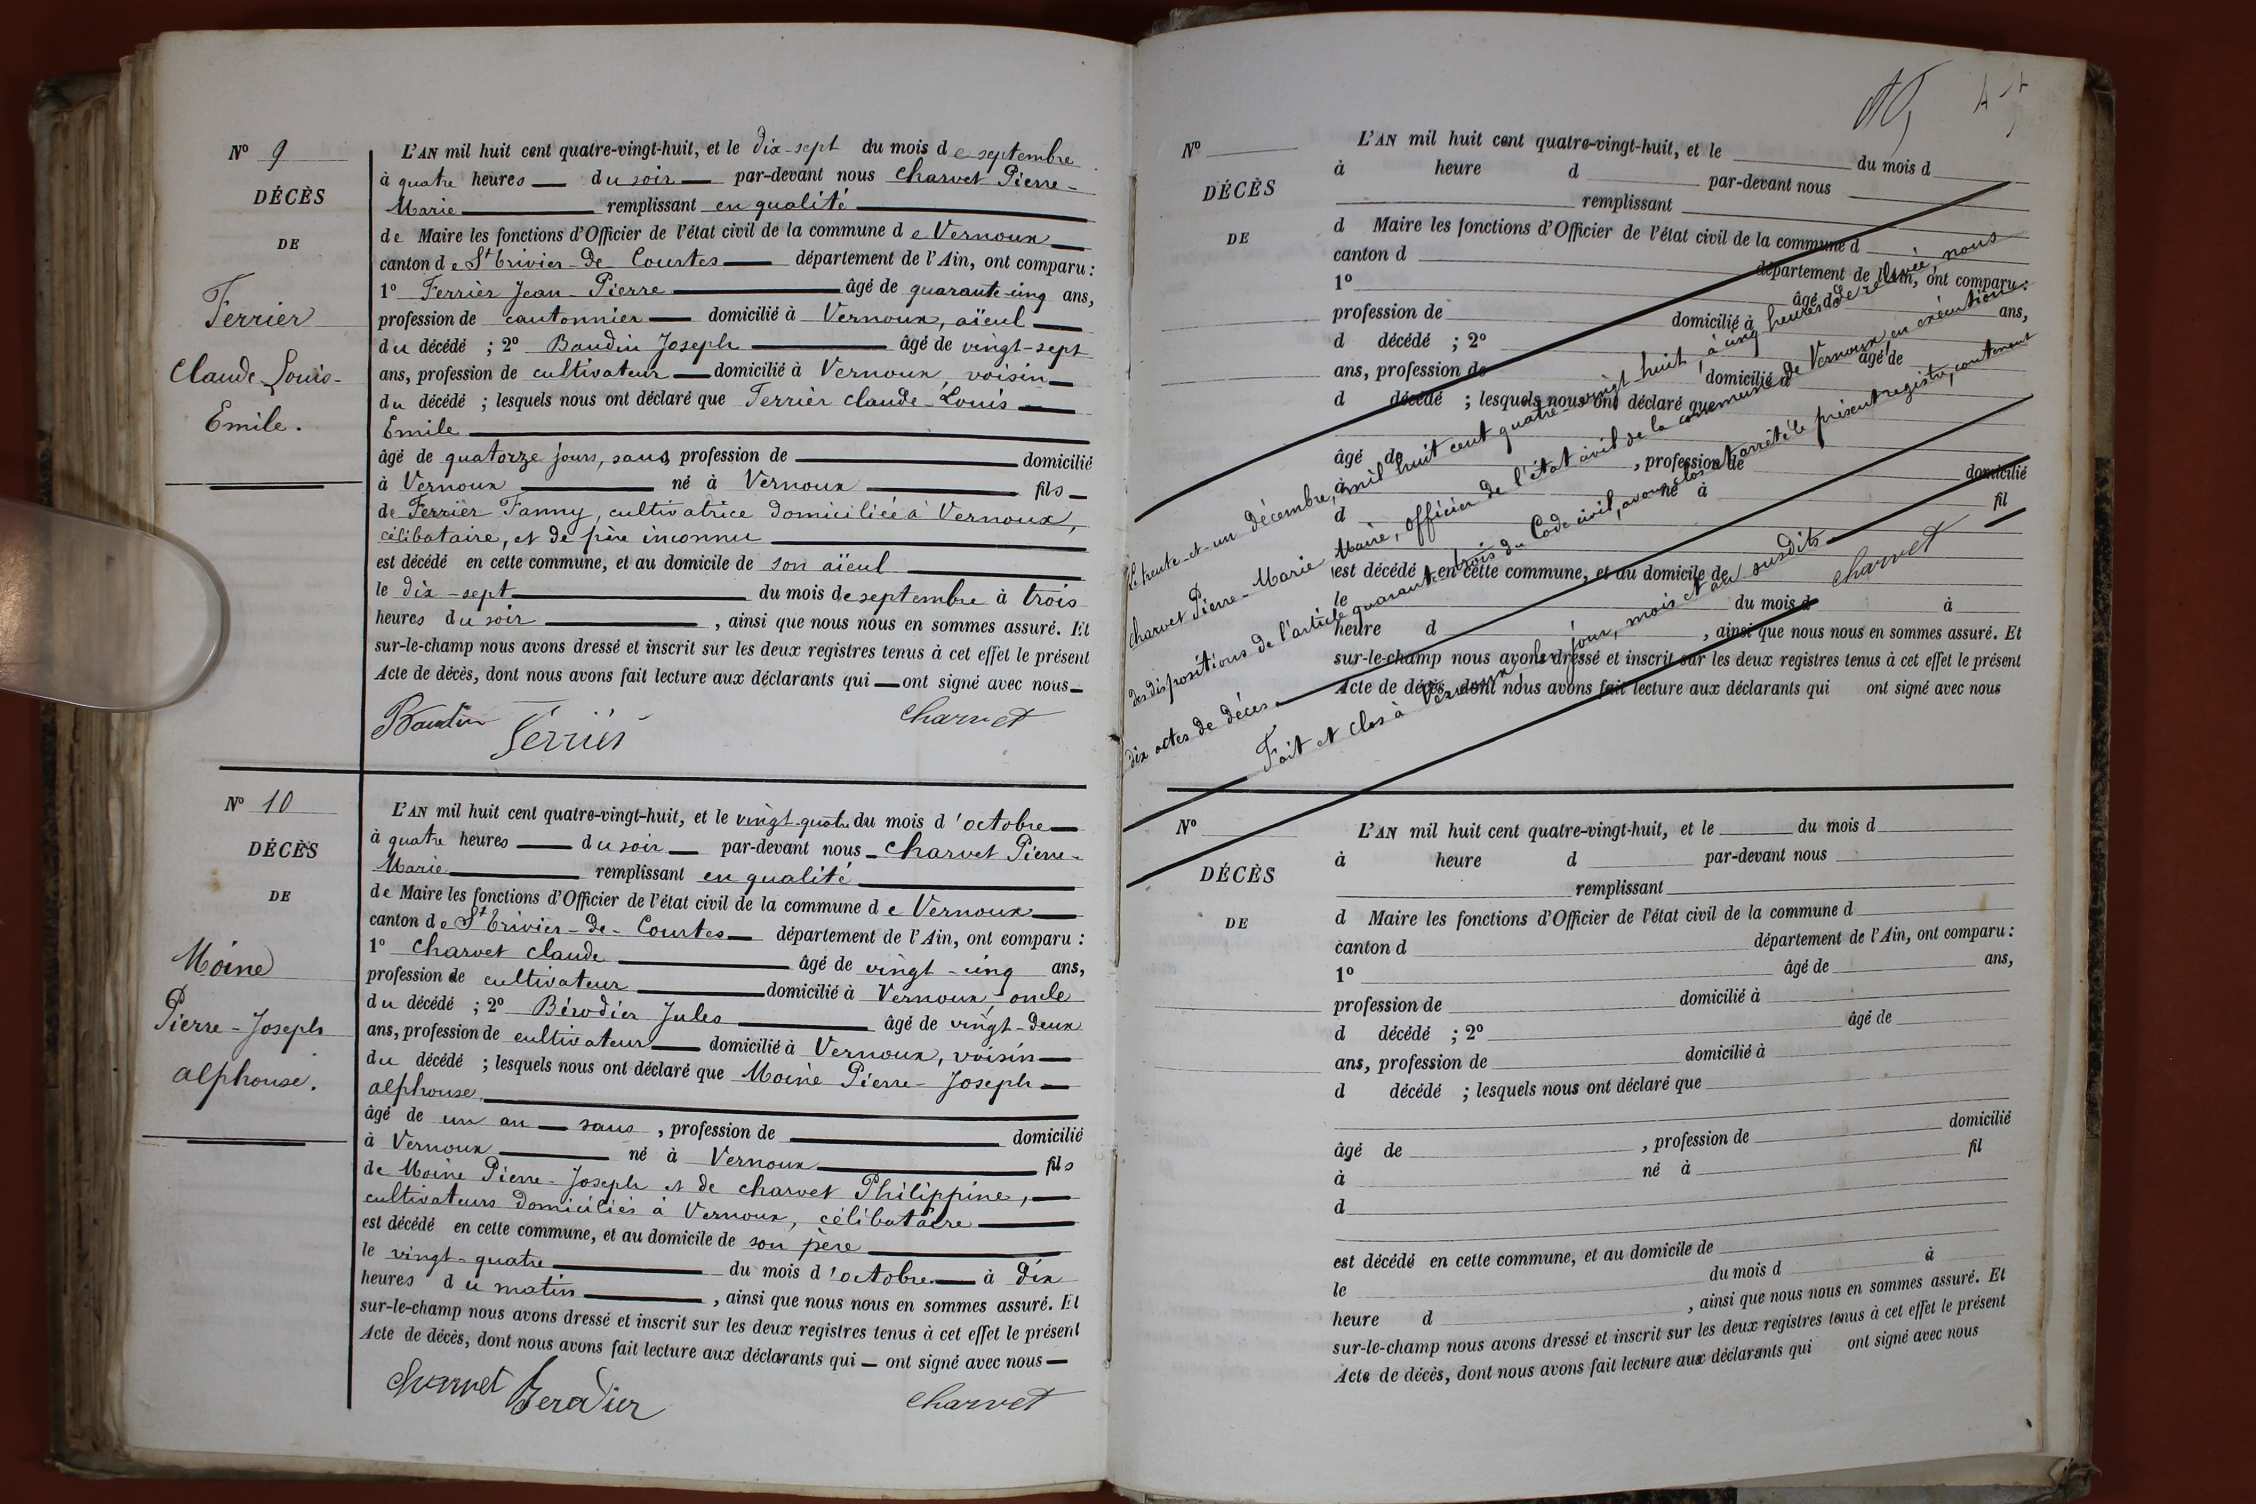 Nº 9
DÉCÈS
DE
Ferrier
Claude-Louis-
Emile.
L'AN mil huit cent quatre-vingt-huit, et le dix-sept du mois de septembre
à quatre heures du soir par-devant nous Charvet Pierre-
Marie remplissant en qualité
de Maire les fonctions d'Officier de l'état civil de la commune de Vernoux
canton de St Trivier-de Courtes département de l'Ain, ont comparu :
1º Ferrier Jean-Pierre âgé de quarante-cinq ans,
profession de cantonnier domicilié à Vernoux, aïeul
du décédé ; 2º Baudin Joseph âgé de vingt-sept
ans, profession de cultivateur domicilié à Vernoux, voisin
du décédé ; lesquels nous ont déclaré que Ferrier Claude-Louis
Emile
âgé de quatorze jours, sans, profession de domicilié
à Vernoux né à Vernoux fils
de Ferrier Fanny, cultivatrice domiciliée à Vernoux,
célibataire, et de père inconnu
est décédé en cette commune, et au domicile de son aïeul
le dix-sept du mois de septembre à trois
heures du soir, ainsi que nous nous en sommes assuré. Et
sur-le-champ nous avons dressé et inscrit sur les deux registres tenus à cet effet le présent
Acte de décès, dont nous avons fait lecture aux déclarants qui ont signé avec nous
Baudin Ferrier Charvet
Nº 10
DÉCÈS
DE
Moine
Pierre-Joseph
alphonse.
L'AN mil huit cent quatre-vingt-huit, et le vingt-quatre du mois d'octobre
à quatre heures du soir par-devant nous Charvet Pierre-
Marie remplissant en qualité
de Maire les fonctions d'Officier de l'état civil de la commune de Vernoux
canton de St Trivier-de-Courtes département de l'Ain, ont comparu :
1º Charvet Claude âgé de vingt-cinq ans,
profession de cultivateur domicilié à Vernoux, oncle
du décédé ; 2º Bérodier Jules âgé de vingt-deux
ans, profession de cultivateur domicilié à Vernoux, voisin
du décédé ; lesquels nous ont déclaré que Moine Pierre-Joseph
alphonse
âgé de un an sans, profession de domicilié
à Vernoux né à Vernoux fils
de Moine Pierre-Joseph et de Charvet Philippine,
cultivateurs domiciliés à Vernoux, célibataire
est décédé en cette commune, et au domicile de son père
le vingt-quatre du mois d'octobre à dix
heures du matin, ainsi que nous nous en sommes assuré. Et
sur-le-champ nous avons dressé et inscrit sur les deux registres tenus à cet effet le présent
Acte de décès, dont nous avons fait lecture aux déclarants qui ont signé avec nous
Charvet Berodier Charvet
Nº
DÉCÈS
DE
L'AN mil huit cent quatre-vingt-huit, et le du mois d
à heure d par-devant nous
remplissant
d Maire les fonctions d'Officier de l'état civil de la commune d
canton d département de l'Ain, ont comparu :
1º âgé de ans,
profession de domicilié à
d décédé ; 2º âgé de
ans, profession de domicilié à
d décédé ; lesquels nous ont déclaré que
âgé de , profession de domicilié
à né à fil
d
est décédé en cette commune, et au domicile de
le du mois d à
heure d , ainsi que nous nous en sommes assuré. Et
sur-le-champ nous avons dressé et inscrit sur les deux registres tenus à cet effet le présent
Acte de décès, dont nous avons fait lecture aux déclarants qui ont signé avec nous
Le trente-et-un décembre, mil huit cent quatre-vingt-huit, à cinq heures de relevée, nous
Charvet Pierre-Marie Maire, officier de l'état civil de la commune de Vernoux en exécution
des dispositions de l'article quarante-trois du Code civil, avons clos et arrêté le présent registre, contenant
dix actes de décès.
Fait et clos à Vernoux, les jour, mois et an susdits
Charvet
Nº
DÉCÈS
DE
L'AN mil huit cent quatre-vingt-huit, et le du mois d
à heure d par-devant nous
remplissant
d Maire les fonctions d'Officier de l'état civil de la commune d
canton d département de l'Ain, ont comparu :
1º âgé de ans,
profession de domicilié à
d décédé ; 2º âgé de
ans, profession de domicilié à
d décédé ; lesquels nous ont déclaré que
âgé de , profession de domicilié
à né à fil
d
est décédé en cette commune, et au domicile de
le du mois d à
heure d , ainsi que nous nous en sommes assuré. Et
sur-le-champ nous avons dressé et inscrit sur les deux registres tenus à cet effet le présent
Acte de décès, dont nous avons fait lecture aux déclarants qui ont signé avec nous